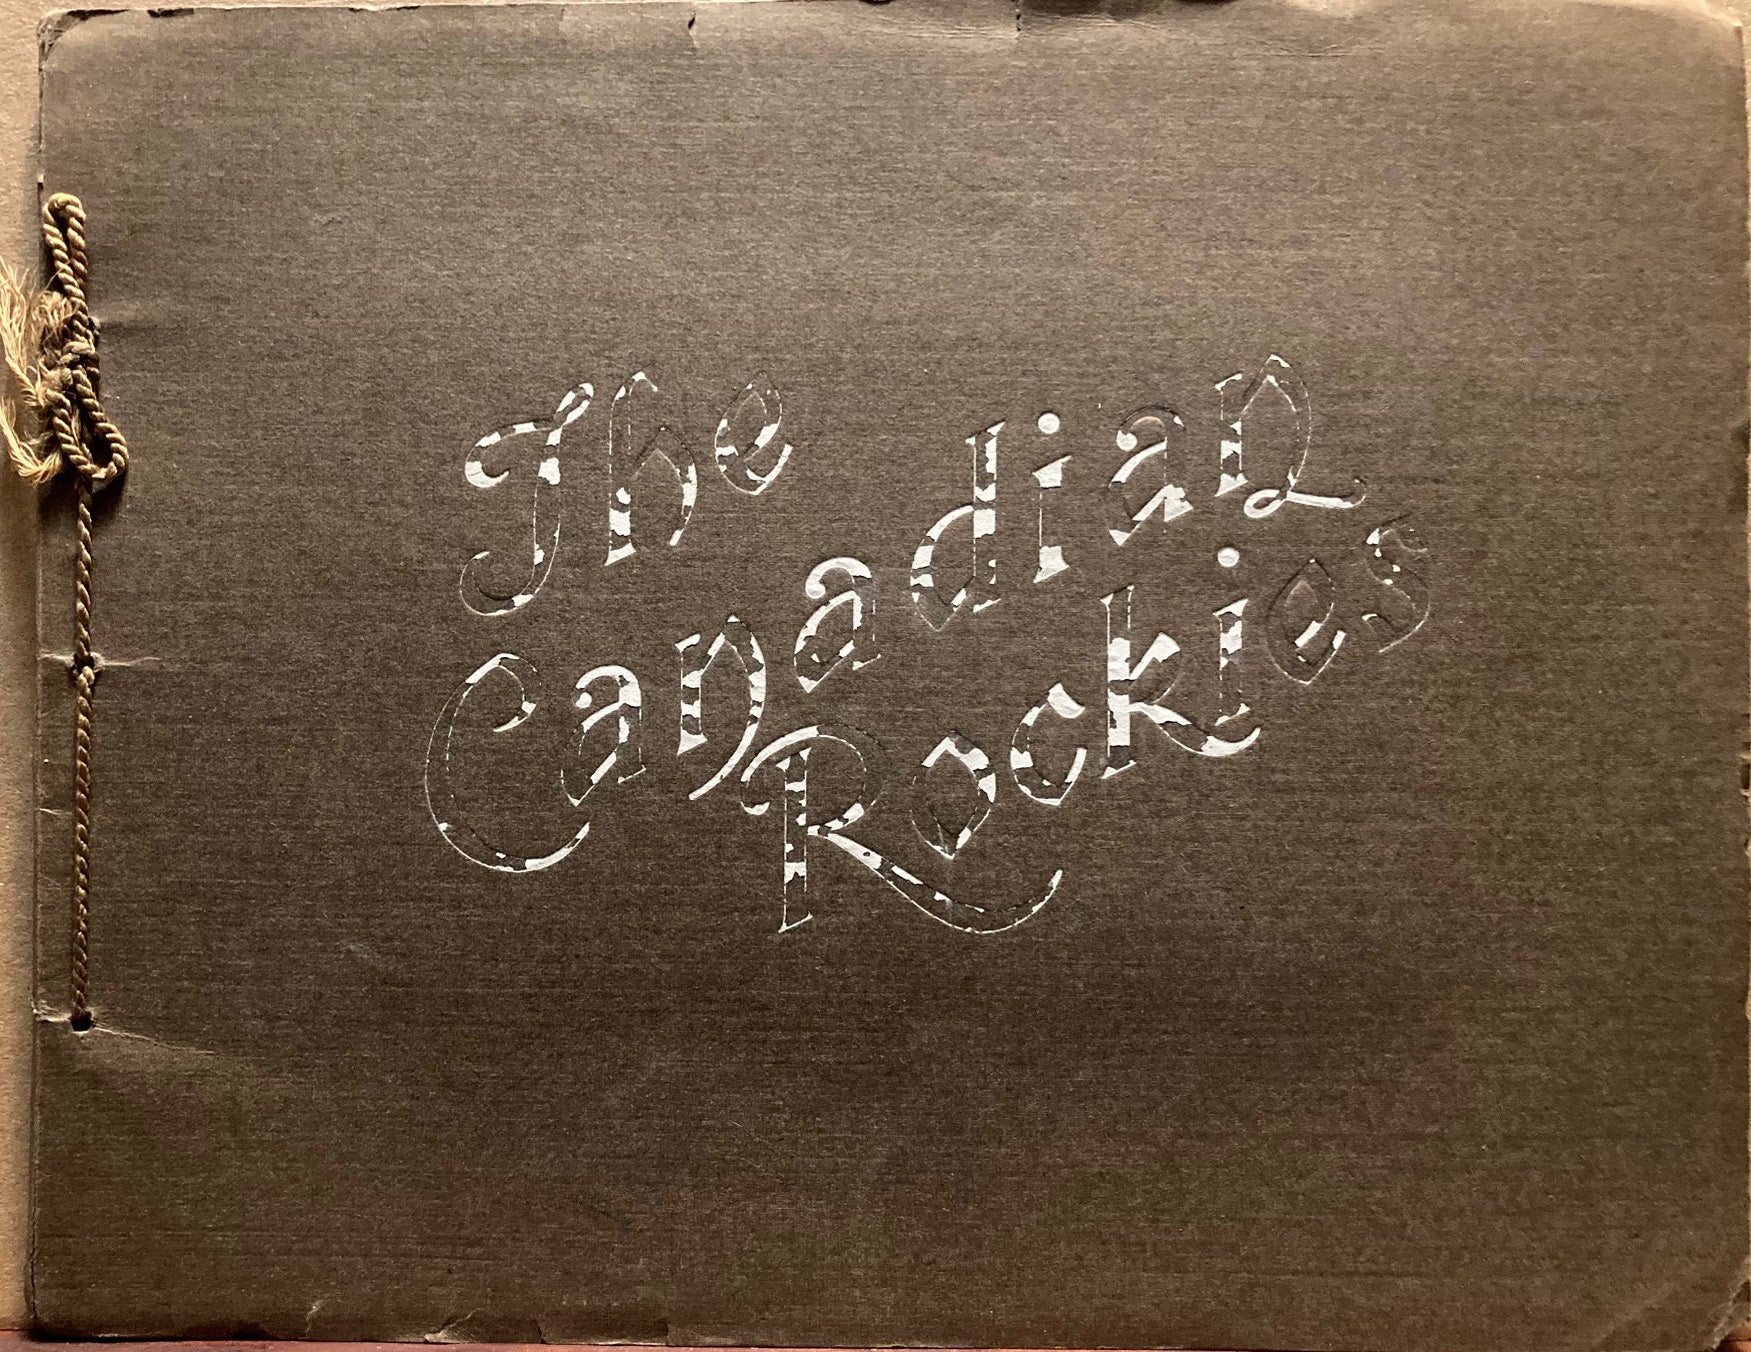 The
Canadian
Rockies